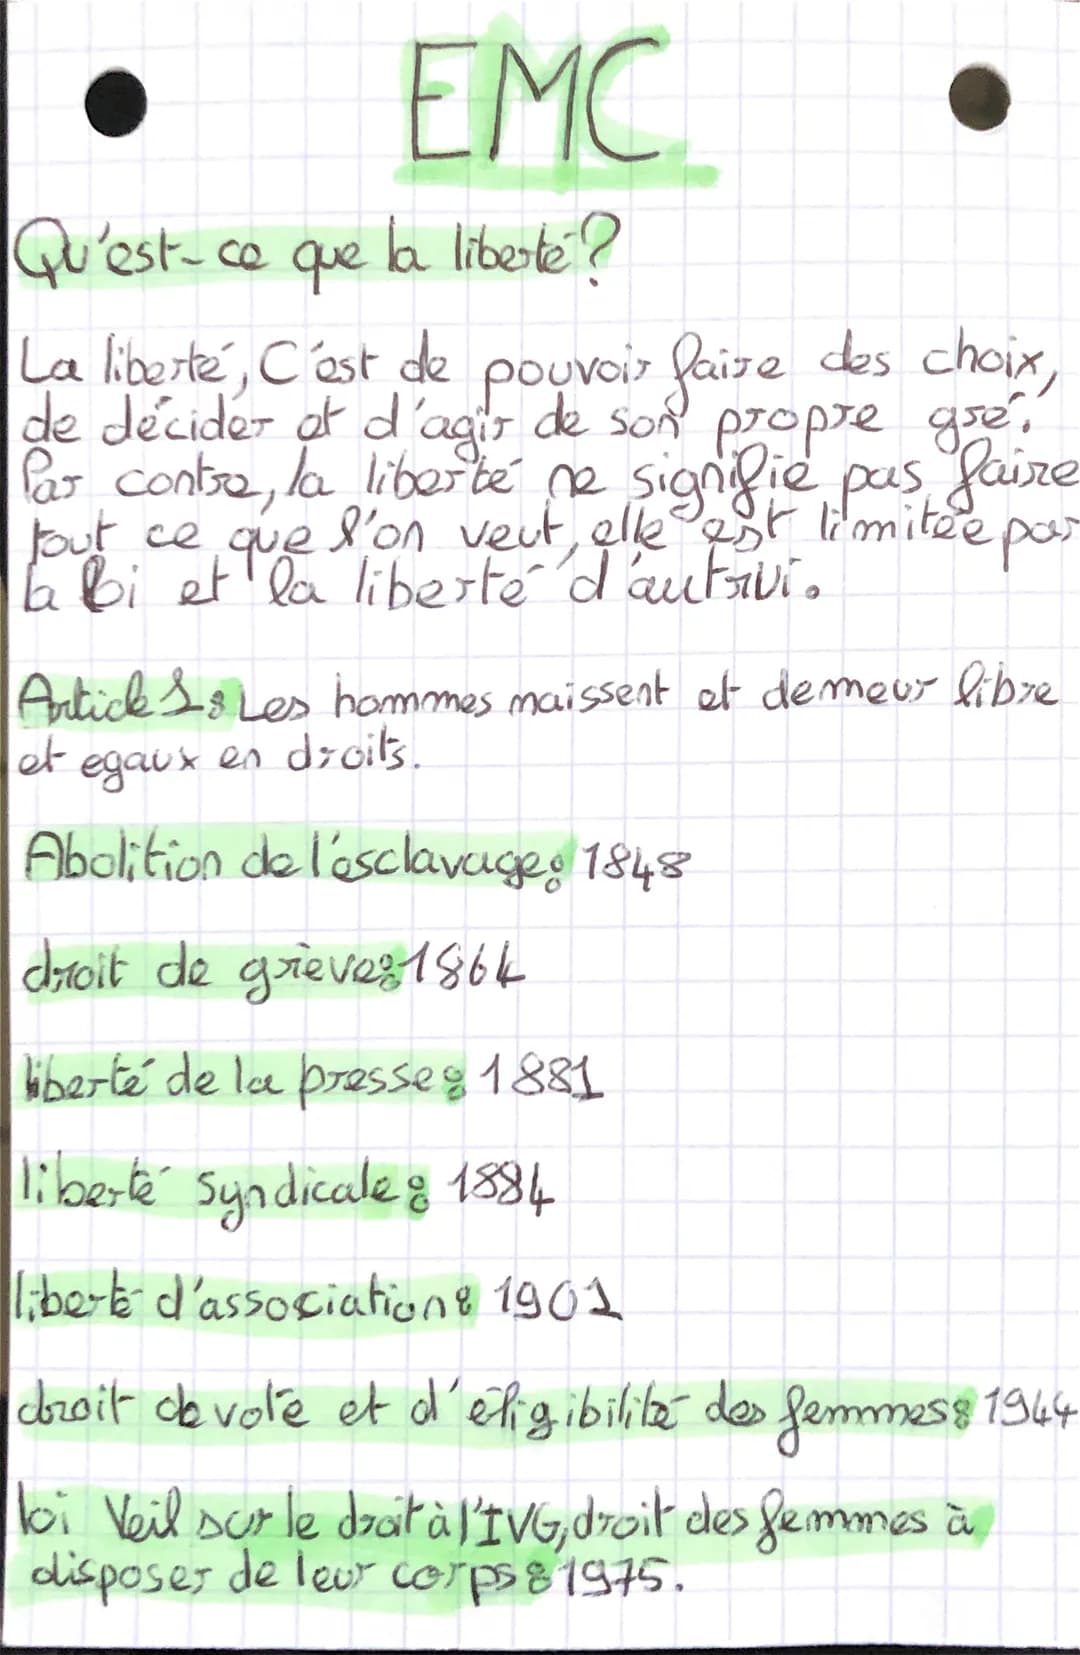 EMC
Qu'est-ce que la liberté?
La liberté, C'est de pouvoir faire des choix,
de décider et d'agir de son propre gré.
Par contre, la liberté ne signifie pas faire
tout ce que l'on veut, elle est limitée par
la loi et la liberté d'autrui.
Article 1: Les hommes naissent et demeur libre
et egaux en droits.
Abolition de l'esclavage: 1848
droit de grève: 1864
liberté de la presse: 1881
liberté syndicale: 1884
liberté d'association: 1901
droit de vote et d'éligibilité des femmes: 1944
loi Veil sur le droit à l'IVG, droit des femmes à
disposer de leur corps: 1975.